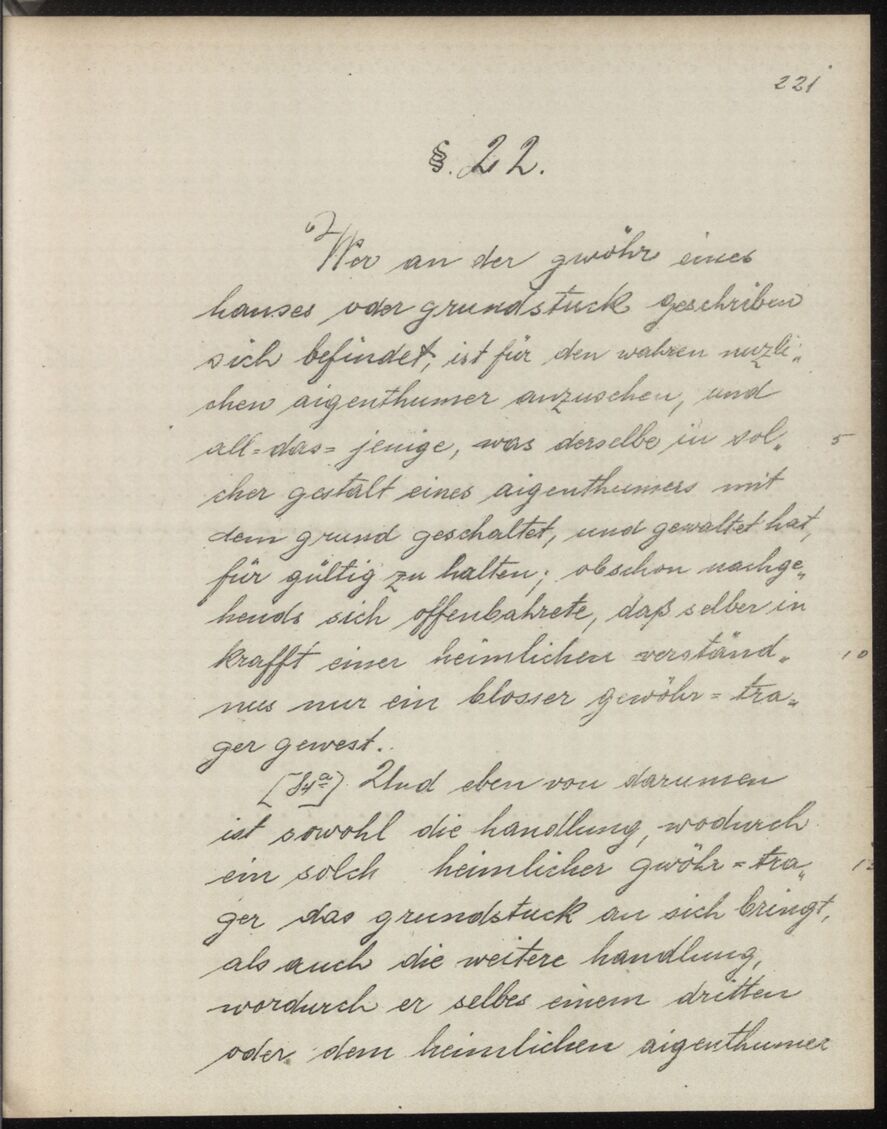 221
§. 22.
Wer an der gwöhr eines
hauses oder grundstuck geschriben
sich befindet, ist für den wahren nuzli„
chen aigenthumer anzusehen, und
all=das=jenige, was derselbe in sol„ 5
cher gestalt eines aigenthumers mit
dem grund geschaltet, und gewaltet hat,
für gültig zu halten; obschon nachge„
hends sich offenbahrete, daß selber in
krafft einer heimlichen verständ„ 10
nus nur ein blosser gewöhr=tra„
ger gewest.
[84a] Und eben von darumen
ist sowohl die handlung, wodurch
ein solch heimlicher gwöhr=tra„
ger das grundstuck an sich bringt,
als auch die weitere handlung,
wordurch er selbes einem dritten
oder dem heimlichen aigenthumer